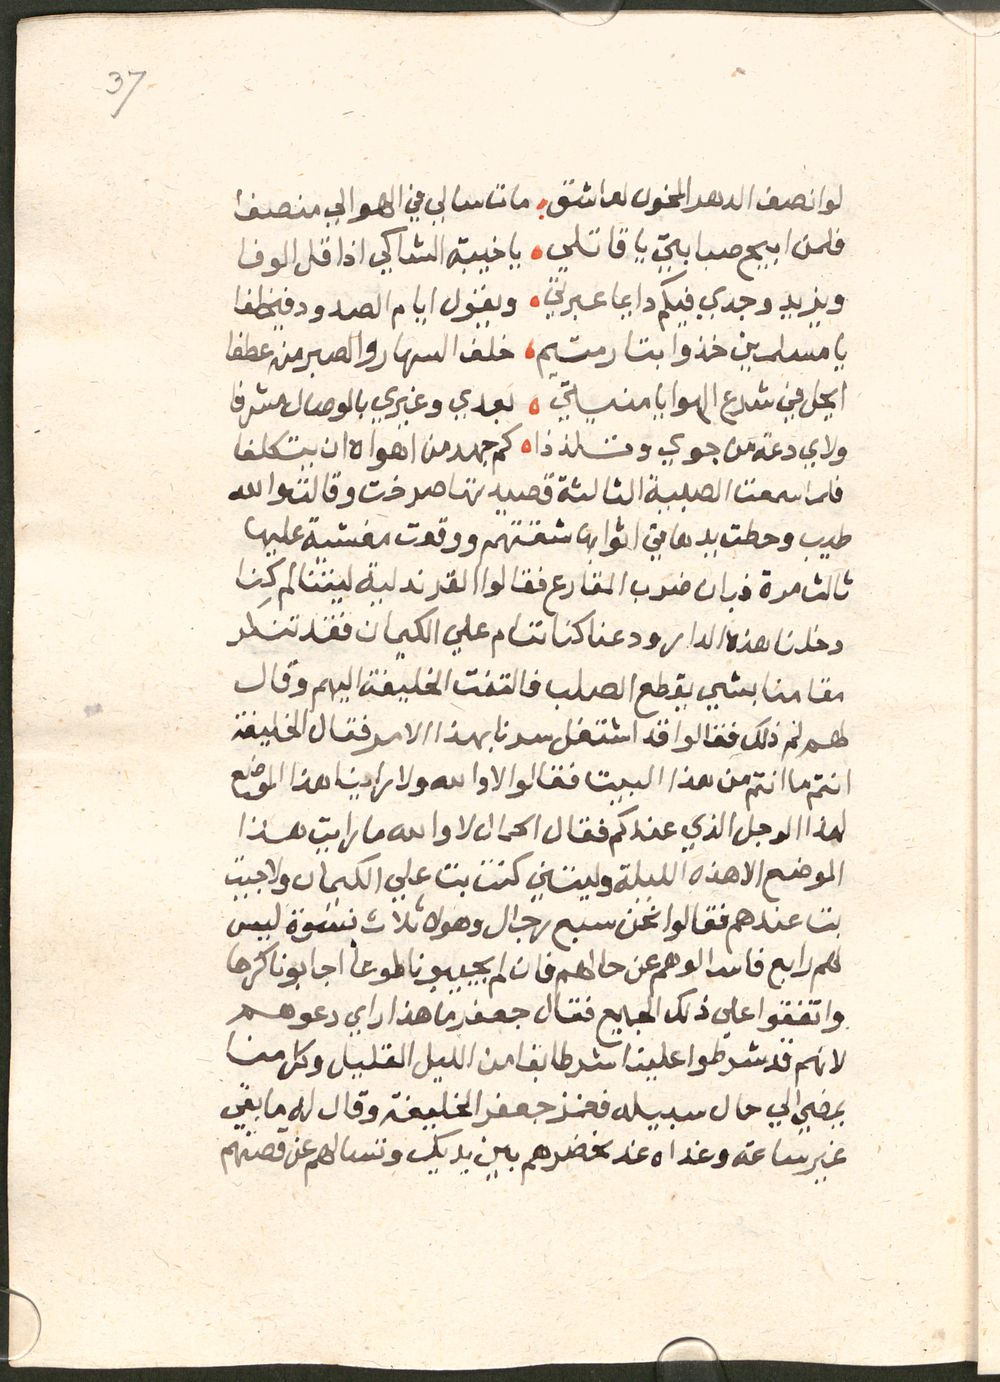 37
لو انصف الدهر الخون لعاشق ما تاسالي في الهوا لي منصفا
فلمن ابيح صبابتي يا قاتلي يا خيبة الشاكي اذا قل الوفا
ويزيد وجدي فيكم دايما عبرتي ويقول ايام الصدود فيخلفا
يا مسلمين خذوا بتار متيم خلف السهار والصبر منه عطفا
ايحل في شرع الهوا يا منيتي بعدي وغيري بالوصال مشرفا
ولاي دعة من جوي وتلذذا كم جهد من اهواه ان يتكلفا
فلما سمعت الصبية الثالثة قصيدتها صرخت وقالت والله
طيب وحطت يدها في اثوابها شقتهم ووقعت مغشية عليها
ثالث مرة فبان ضرب المقارع فقالوا القرندلية ليتنا لم كنا
دخلنا هذه الدار ودعنا كنا نتنام علي الكيمان فقد تنكر
مقامنا بشي يقطع الصلب فالتفت الخليفة اليهم وقال
لهم لم ذلك فقالوا قد اشتغل سرنا بهذا الامر فقال الخليفة
انتم ما انتم من هذا البيت فقالوا لا والله ولا راينا هذا الموضع
لهذا الرجل الذي عندكم فقال الحمال لا والله ما رايت هذا
الموضع الا هذه الليلة وليتني كنت بت علي الكيمان ولا جيت
بت عندهم فقالوا نحن سبع رجال وهولا ثلاث نسوة ليس
لهم رابع فاسالوهم عن حالهم فان لم يجيبونا طوعا اجابونا كرها
واتفقوا علي ذلك الجميع فقال جعفر ما هذا راي دعوهم
لانهم قد شرطوا علينا شرط ما بقا من الليل القليل وكل منا
يمضي الي حال سبيله فغمز جعفر الخليفة وقال له ما بقي
غير ساعة وغداه غد نحضرهم بين يديك ونسالهم عن قصتهم